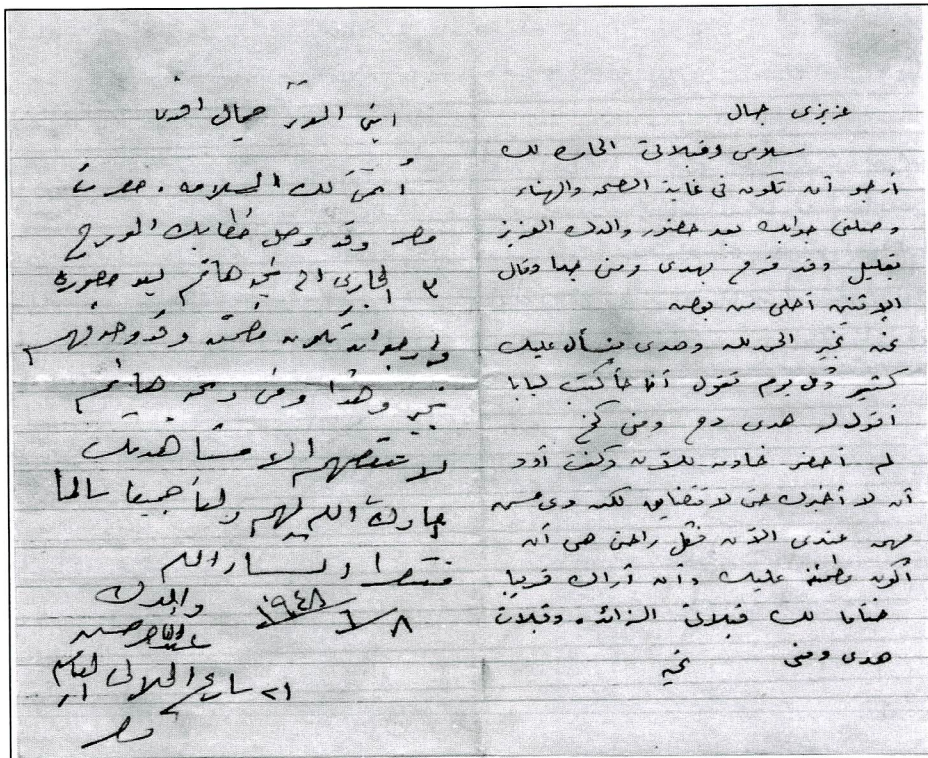 عزيزى جمال
سلامى وقبلاتى الحارة لك
أرجو أن تكون فى غاية الصحة والهناء
وصلنى جوابك بعد حضور والدك العزيز
بقليل وقد فرح بهدى ومنى جدا وقال
الإثنين أحلى من بعض
نحن بخير الحمد لله وهدى بتسأل عليك
كتير وكل يوم تقول أنا حأكتب لبابا
أقول له هدى دح ومنى كخ
لم أحضر خادمه للآن وكنت أود
أن لا أخبرك حتى لا تتضايق لكن دى مش
مهم عندى الآن فكل راحتى هى أن
أكون مطمئنة عليك وأن أراك قريبا
ختاما لك قبلاتى الزائدة وقبلات
هدى ومنى
تحيه
ابنى العزيز جمال افندى
أتمنى لك السلامه . حضرت
مصر وقد وصل خطابك المورخ
٣ الجارى الى تحيه هانم بعد حضورى
وارجو ان تكون مطمئن وقد وجدتهم
بخير وهدا ومنى وتحيه هانم
لا ينقصهم الا مشاهدتك
بارك الله لهم ولنا جميعا سالما
منتصرا ان شاء الله
والدك
١٩٤٨/٦/٨
عبد الناصر حسين
٢١ شارع الجلالى
مصر